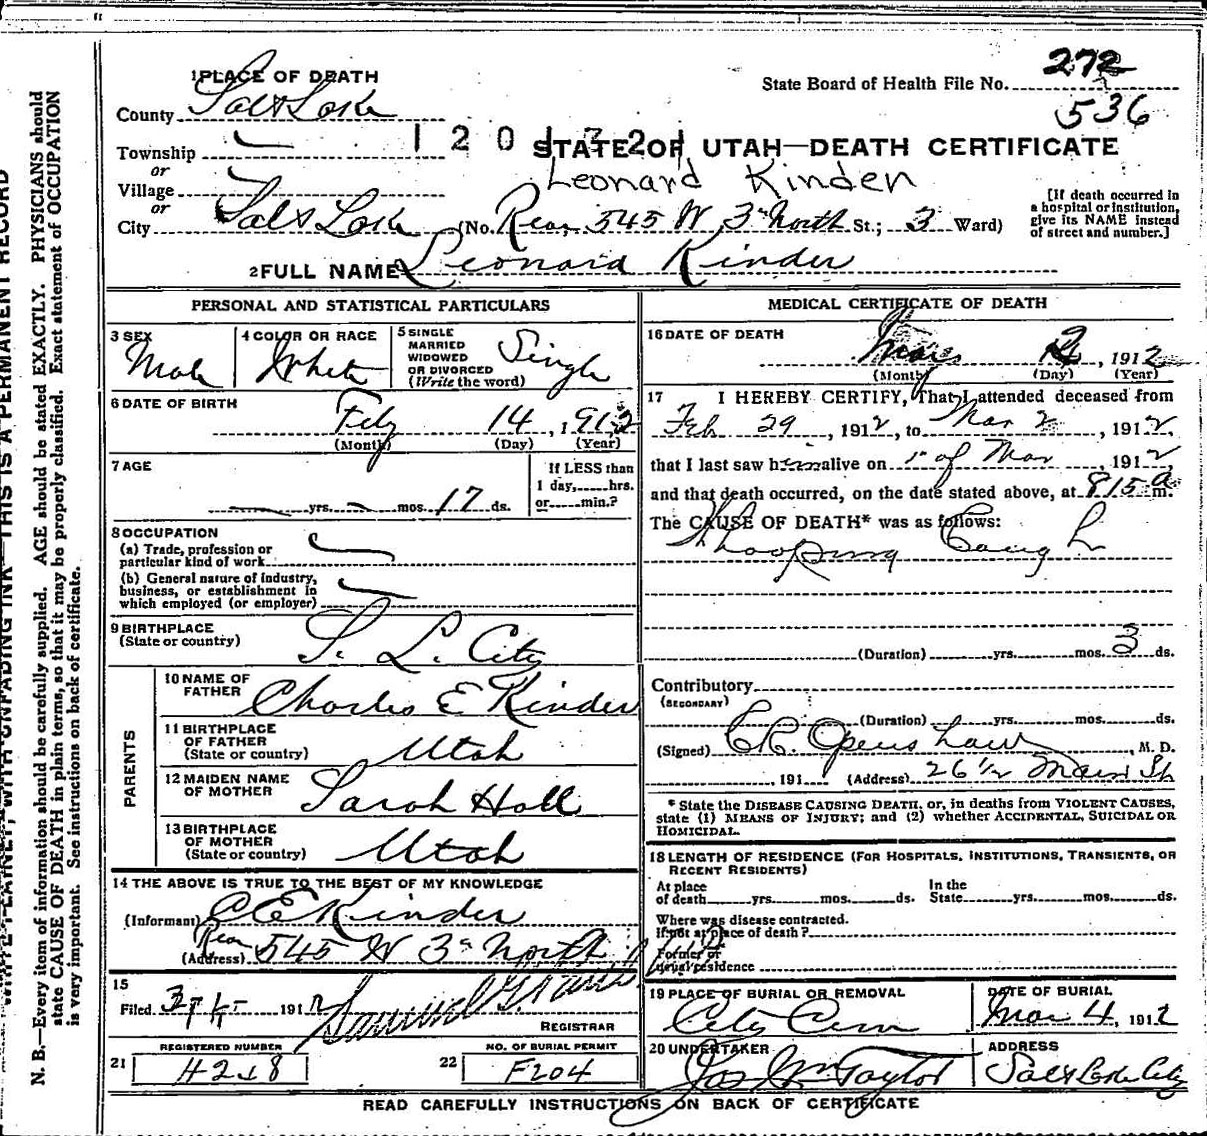 1 PLACE OF DEATH
State Board of Health File No. 272
536
County Salt Lake
Township
or
Village
or
City Salt Lake (No. Rear 545 W 3rd North St.; 3 Ward)
STATE OF UTAH—DEATH CERTIFICATE
Leonard Kinden
[If death occurred in
a hospital or institution,
give its NAME instead
of street and number.]
2 FULL NAME Leonard Kinder
PERSONAL AND STATISTICAL PARTICULARS
3 SEX Male
4 COLOR OR RACE White
5 SINGLE
MARRIED
WIDOWED
OR DIVORCED
(Write the word) Single
6 DATE OF BIRTH
Feby 14, 1912
(Month) (Day) (Year)
7 AGE
yrs. mos. 17 ds.
If LESS than
1 day, hrs.
or min.?
8 OCCUPATION
(a) Trade, profession or
particular kind of work
(b) General nature of industry,
business, or establishment in
which employed (or employer)
9 BIRTHPLACE
(State or country) S. L. City
PARENTS
10 NAME OF
FATHER Charles E Kinder
11 BIRTHPLACE
OF FATHER
(State or country) Utah
12 MAIDEN NAME
OF MOTHER Sarah Hall
13 BIRTHPLACE
OF MOTHER
(State or country) Utah
14 THE ABOVE IS TRUE TO THE BEST OF MY KNOWLEDGE
(Informant) C E Kinder
(Address) Rear 545 W 3rd North
15
Filed 191 Samuel G.
REGISTRAR
REGISTERED NUMBER
21 H218
NO. OF BURIAL PERMIT
22 F204
MEDICAL CERTIFICATE OF DEATH
16 DATE OF DEATH
Mar 2, 1912
(Month) (Day) (Year)
17 I HEREBY CERTIFY, That I attended deceased from
Feb 29, 1912, to Mar 2, 1912,
that I last saw him alive on 1st of Mar, 1912
and that death occurred, on the date stated above, at 8 15 a m.
The CAUSE OF DEATH* was as follows:
Whooping Cough
(Duration) yrs. mos. 3 ds.
Contributory
(SECONDARY)
(Duration) yrs. mos. ds.
(Signed) C R. Openshaw, M. D.
, 191 (Address) 26 1/2 Main St
* State the DISEASE CAUSING DEATH, or, in deaths from VIOLENT CAUSES,
state (1) MEANS OF INJURY; and (2) whether ACCIDENTAL, SUICIDAL OR
HOMICIDAL.
18 LENGTH OF RESIDENCE (FOR HOSPITALS, INSTITUTIONS, TRANSIENTS, OR
RECENT RESIDENTS)
At place
of death yrs. mos. ds.
In the
State yrs. mos. ds.
Where was disease contracted.
If not at place of death?
Former or
usual residence
19 PLACE OF BURIAL OR REMOVAL
City Cem
DATE OF BURIAL
Mar 4, 1912
20 UNDERTAKER
Jos Wm Taylor
ADDRESS
Salt Lake City
READ CAREFULLY INSTRUCTIONS ON BACK OF CERTIFICATE
WRITE PLAINLY, WITH UNFADING INK—THIS IS A PERMANENT RECORD
N. B.—Every item of information should be carefully supplied. AGE should be stated EXACTLY. PHYSICIANS should
state CAUSE OF DEATH in plain terms, so that it may be properly classified. Exact statement of OCCUPATION
is very important. See instructions on back of certificate.